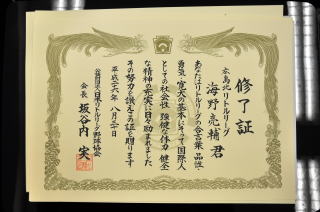 修了証
広島北リトルリーグ
海野亮輔 君
あなたはリトルリーグの合言葉 品性
勇気 寛大の基本にそって国際人
としての社会性 強健な体力 健全
な精神の充実に日々励まれました
その努力を讃えこの証を贈ります
平成二六年 八月三十日
公益財団法人日本リトルリーグ野球協会
会長 坂谷内 実